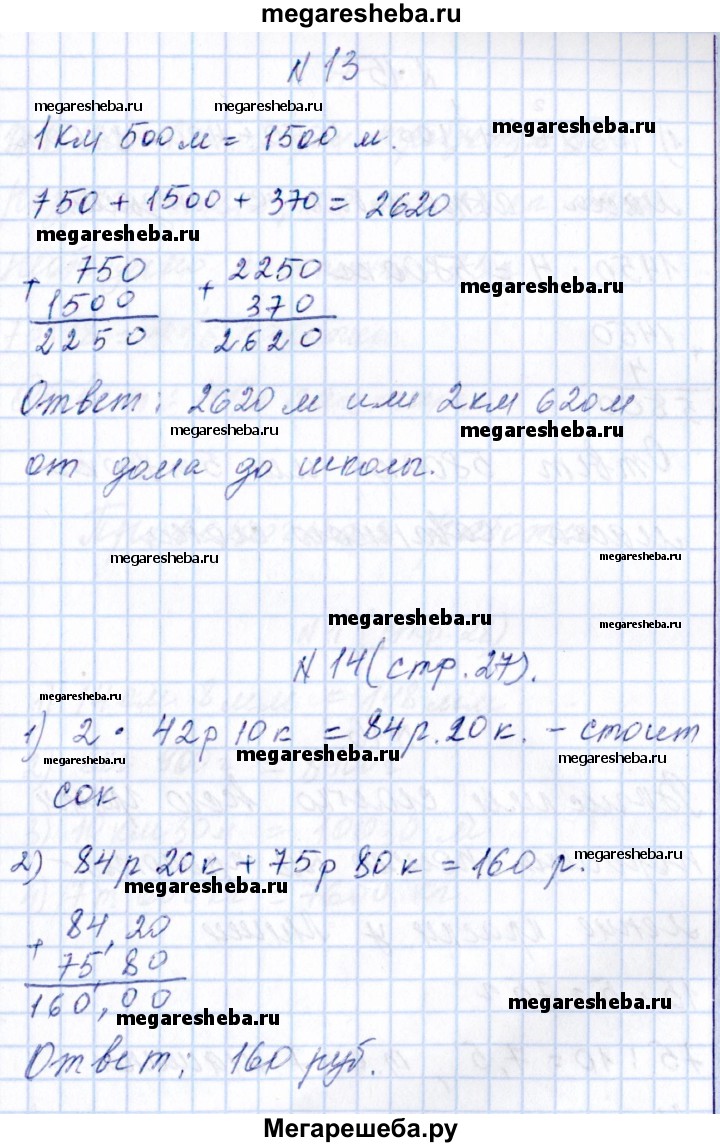 megaresheba.ru
N 13
megaresheba.ru megaresheba.ru
megaresheba.ru
1 км 500 м = 1500 м.
750 + 1500 + 370 = 2620
megaresheba.ru
+ 750 + 2250
megaresheba.ru
1500 370
2250 2620
Ответ: 2620 м или 2 км 620 м
megaresheba.ru megaresheba.ru
от дома до школы.
megaresheba.ru megaresheba.ru
megaresheba.ru megaresheba.ru
N 14 (стр. 27).
megaresheba.ru
1) 2 · 42 р 10 к = 84 р. 20 к. - стоит
megaresheba.ru megaresheba.ru
сок
2) 84 р 20 к + 75 р 80 к = 160 р.
megaresheba.ru
megaresheba.ru
+ 84,20
75,80
160,00
megaresheba.ru
megaresheba.ru
Ответ: 160 руб.
Мегарешеба.ру